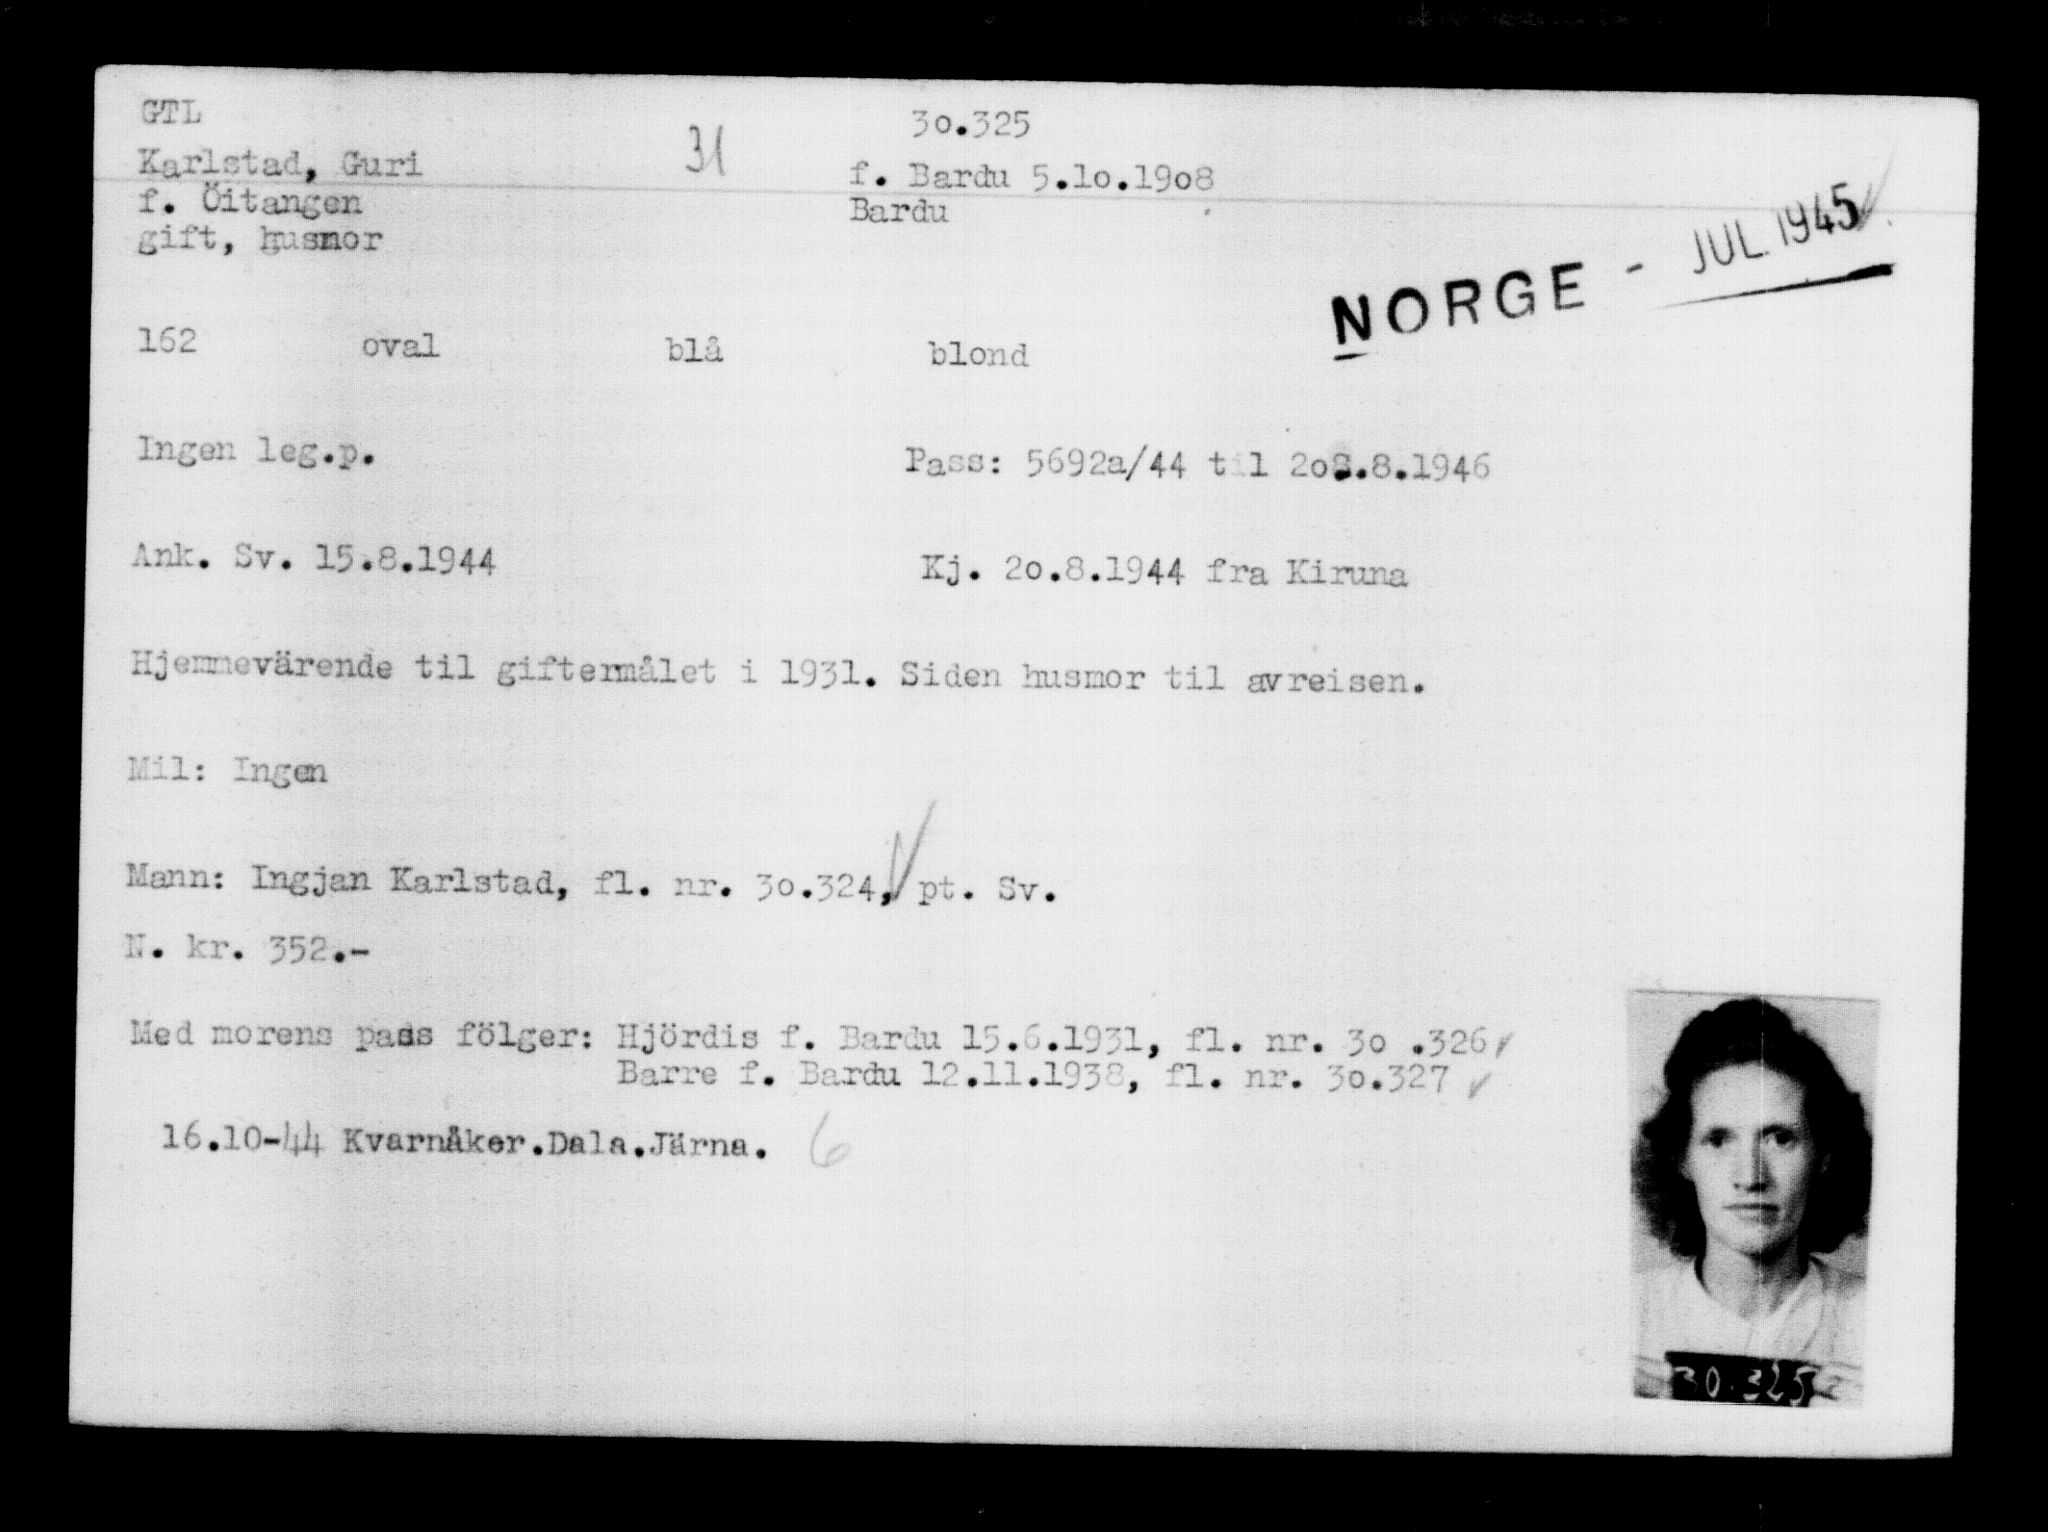 GTL
30.325
Karlstad, Guri
31
f. Bardu 5.10.1908
f. Öitangen
Bardu
gift, husmor
NORGE - JUL. 1945
162 oval blå blond
Ingen leg.p.
Pass: 5692a/44 til 20.8.1946
Ank. Sv. 15.8.1944
Kj. 20.8.1944 fra Kiruna
Hjemmevärende til giftermålet i 1931. Siden husmor til avreisen.
Mil: Ingen
Mann: Ingjan Karlstad, fl. nr. 30.324, pt. Sv.
N. kr. 352.-
Med morens pass fölger: Hjördis f. Bardu 15.6.1931, fl. nr. 30 .326
Barre f. Bardu 12.11.1938, fl. nr. 30.327
16.10-44 Kvarnåker.Dala.Järna. 6
30.325